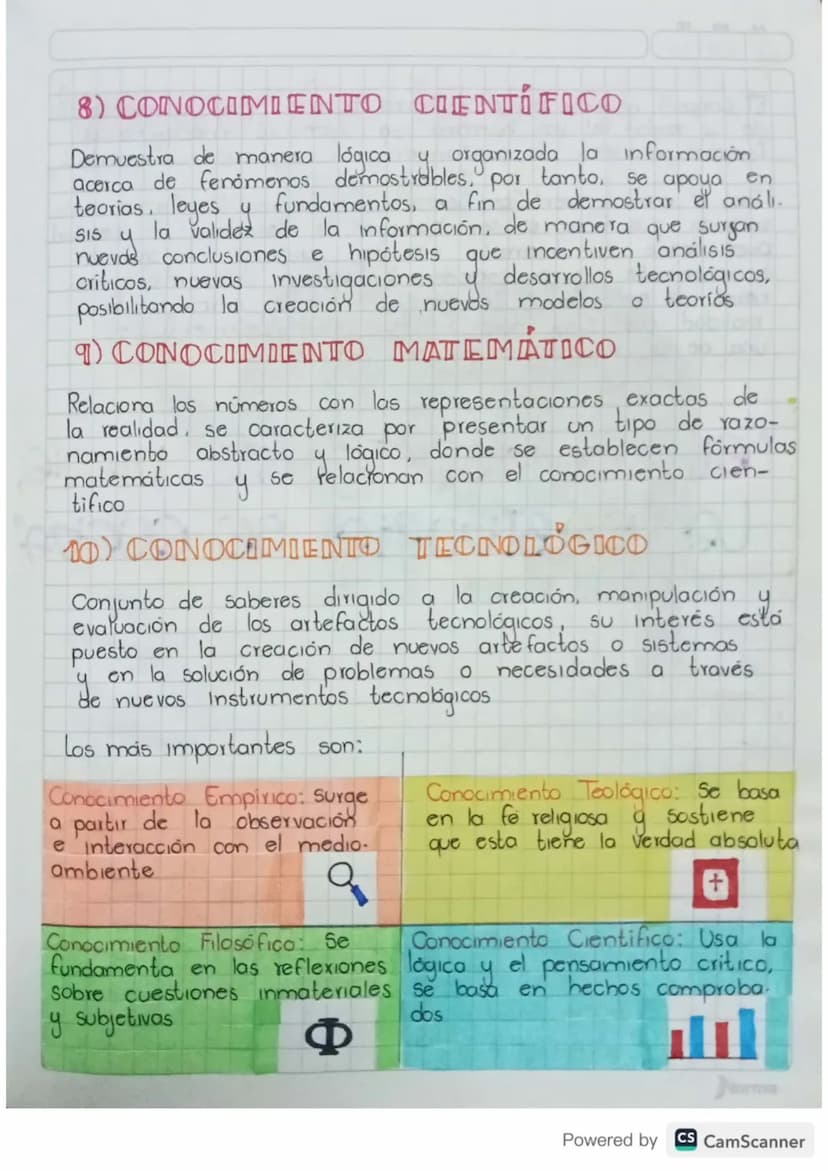 8) CONOCIMIENTO CIENTÍFICO
Demuestra de manera lógica y organizada la información
acerca de fenómenos demostrables, por tanto, se apoya en
teorías, leyes y fundamentos, a fin de demostrar el análi-
sis y la validez de la información, de manera que surjan
nuevas conclusiones e hipótesis que incentiven análisis
criticos, nuevas investigaciones y desarrollos tecnológicos,
posibilitando la creación de nuevos modelos o teorías
9) CONOCIMIENTO MATEMÁTICO
Relaciona los números con las representaciones exactas de
la realidad, se caracteriza por presentar un tipo de razo-
namiento abstracto y lógico, donde se establecen fórmulas
matemáticas y se relacionan con el conocimiento cien-
tifico
10) CONOCIMIENTO TECNOLÓGICO
Conjunto de saberes dirigido a la creación, manipulación y
evaluación de los artefactos tecnológicos, su interés está
puesto en la creación de nuevos artefactos o sistemas
y en la solución de problemas o necesidades a través
de nuevos instrumentos tecnológicos
Los más importantes son:
Conocimiento Empírico: Surge
a partir de la observación
e interacción con el medio-
ambiente
Conocimiento Teológico: Se basa
en la fe religiosa y sostiene
que esta tiene la verdad absoluta
Conocimiento Filosófico: Se
fundamenta en las reflexiones
sobre cuestiones inmateriales
y subjetivas
Φ
Conocimiento Científico: Usa la
lógica y el pensamiento crítico,
se basa en hechos comproba-
dos
norma
Powered by CS CamScanner